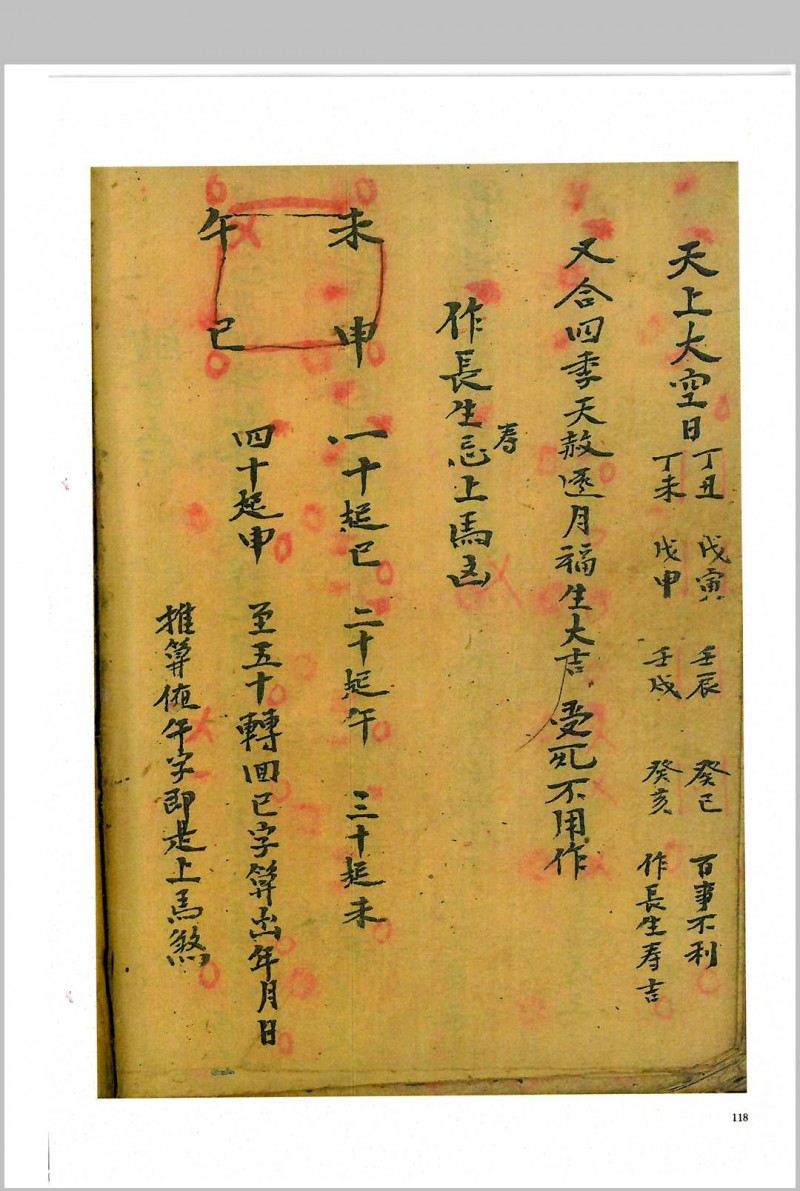 天上大空日
丁丑 戊寅 壬辰 癸巳 百事不利
丁未 戊申 壬戌 癸亥 作長生寿吉
又合四季天赦逐月福生大吉 受死不用作
作長生寿忌上馬凶
未 申
午 巳
一十起巳 二十起午 三十起未
四十起申 至五十轉回巳字算出年月日
推算値午字即是上馬煞
118